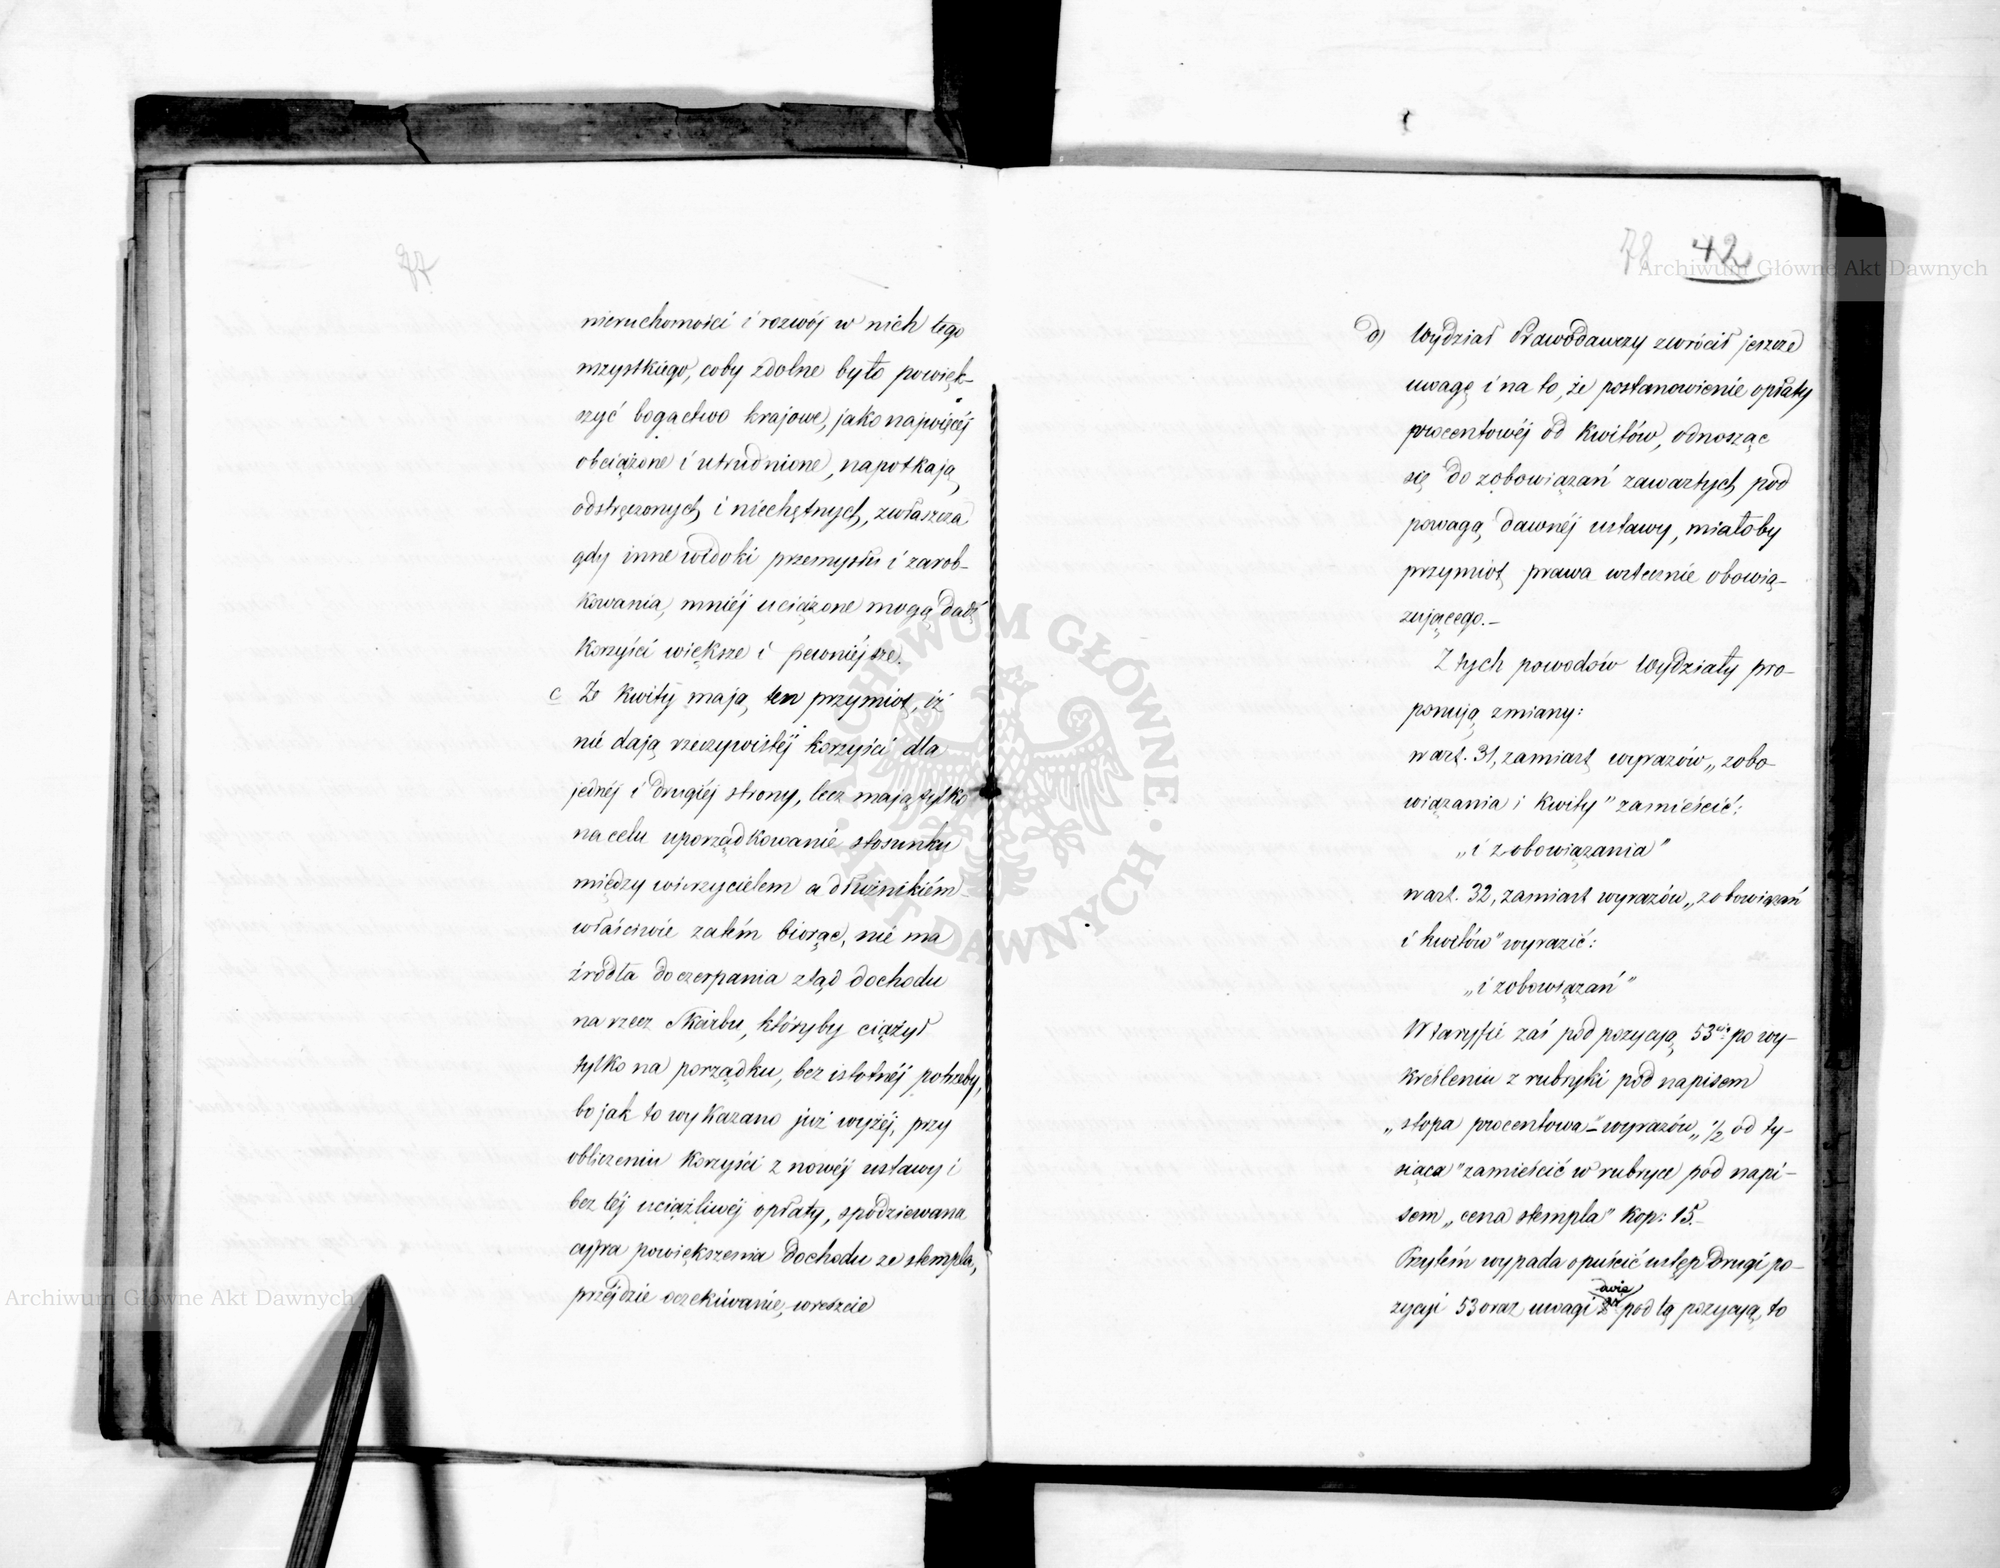 77
nieruchomości i rozwój w nich tego
wszystkiego, coby zdolne było powięk-
szyć bogactwo krajowe, jako najwięcéj
obciążone i utrudnione, napotkają
odstręczonych i niechętnych, zwłaszcza
gdy inne widoki przemysłu i zarob-
kowania, mniéj uciążone mogą dadź
korzyści większe i pewniejsze.
c Że kwity mają ten przymiot, iż
nie dają rzeczywistéj korzyści dla
jednéj i drugiéj strony, lecz mają tylko
na celu uporządkowanie stosunku
między wierzycielem a dłużnikiém-
właściwie zatém biorąc, nie ma
źródła do czerpania ztąd dochodu
na rzecz Skarbu, któryby ciążył
tylko na porządku, bez istotnéj potrzeby,
bo jak to wykazano już wyżéj, przy
obliczeniu korzyści z nowéj ustawy i
bez téj uciążliwéj opłaty, spodziewana
cyfra powiększenia dochodu ze stempla,
przéjdzie oczekiwanie, wreszcie
78 42
d) Wydział Prawodawczy zwrócił jeszcze
uwagę i na to, że postanowienie opłaty
procentowéj od kwitów, odnosząc
się do zobowiązań zawartych pod
powagą dawnéj ustawy, miałoby
przymiot prawa wstecznie obowią-
zującego.-
Z tych powodów Wydziały pro-
ponują zmiany:
w art. 31, zamiast wyrazów „zobo-
wiązania i kwity" zamieścić:
„i zobowiązania"
w art. 32, zamiast wyrazów „zobowiązań
i kwitów" wyrazić:
„i zobowiązań"
W taryfie zaś pod pozycyą 53cią po wy-
kreśleniu z rubryki pod napisem
„stopa procentowa"- wyrazów „1/2 od ty-
siąca" zamieścić w rubryce pod napi-
sem „cena stempla" kop: 15.-
Przytém wypada opuścić ustęp drugi po-
zycyi 53 oraz uwagi pod tą pozycyą, to
Archiwum Główne Akt Dawnych
Archiwum Główne Akt Dawnych
ARCHIWUM GŁÓWNE · AKT DAWNYCH ·